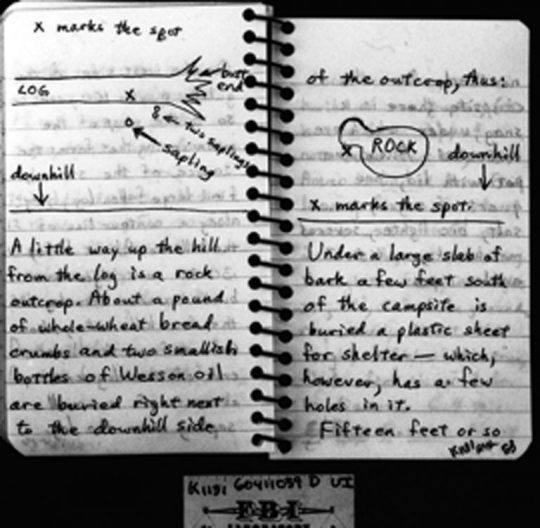 x marks the spot
butt
end
LOG
x
8 ← two saplings
o
sapling
downhill
A little way up the hill
from the log is a rock
outcrop. About a pound
of whole-wheat bread
crumbs and two smallish
bottles of Wesson oil
are buried right next
to the downhill side
of the outcrop, thus:
ROCK
x
downhill
x marks the spot.
Under a large slab of
bark a few feet south
of the campsite is
buried a plastic sheet
for shelter — which,
however, has a few
holes in it.
Fifteen feet or so
FBI
LABORATORY